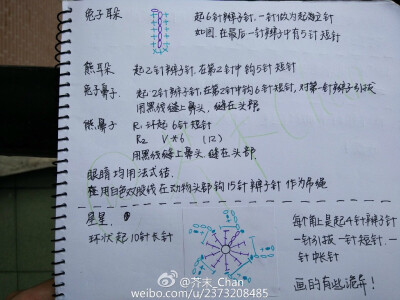 兔子耳朵
起6针辫子针.一针做为起立针
如图.在最后一针辫子中有5针短针
熊耳朵 起2针辫子针.在第2针中钩5针短针
兔子鼻子 起2针辫子针.在第2针中钩6针短针,对第一针辫子引拔
用黑线缝上鼻头.缝在头部
熊鼻子 R1 环起6针短针
R2 V*6 (12)
用黑线缝上鼻头.缝在头部
眼睛均用法式结.
用白色双股线在动物头部钩15针辫子针作为吊绳
星星.
环状起10针长针
每个角上是起4针辫子针
一针引拔.一针短针.一
针中长针
画的有些诡异!
@芥末_Chan
weibo.com/u/2373208485